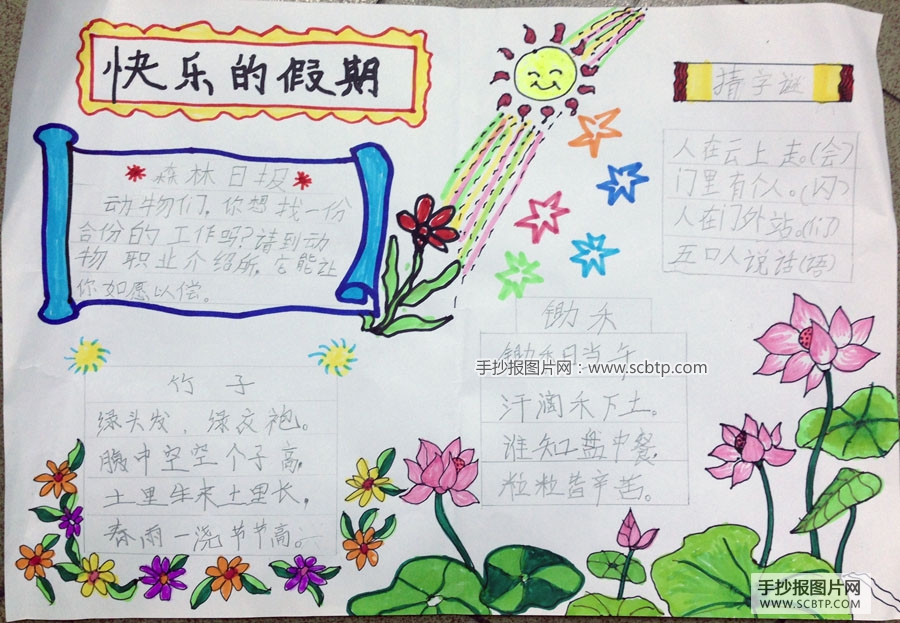 快乐的假期
森林日报
动物们，你想找一份
合份的工作吗?请到动
物职业介绍所，它能让
你如愿以偿。
竹子
绿头发，绿衣袍。
腹中空空个子高，
土里生来土里长，
春雨一浇节节高。
猜字谜
人在云上走。(会)
门里有个人。(闪)
人在门外站。(们)
五口人说话(语)
锄禾
锄禾日当午
手抄报图片网：www.scbtp.com
汗滴禾下土。
谁知盘中餐，
粒粒皆辛苦。
手抄报图片网
WWW.SCBTP.COM